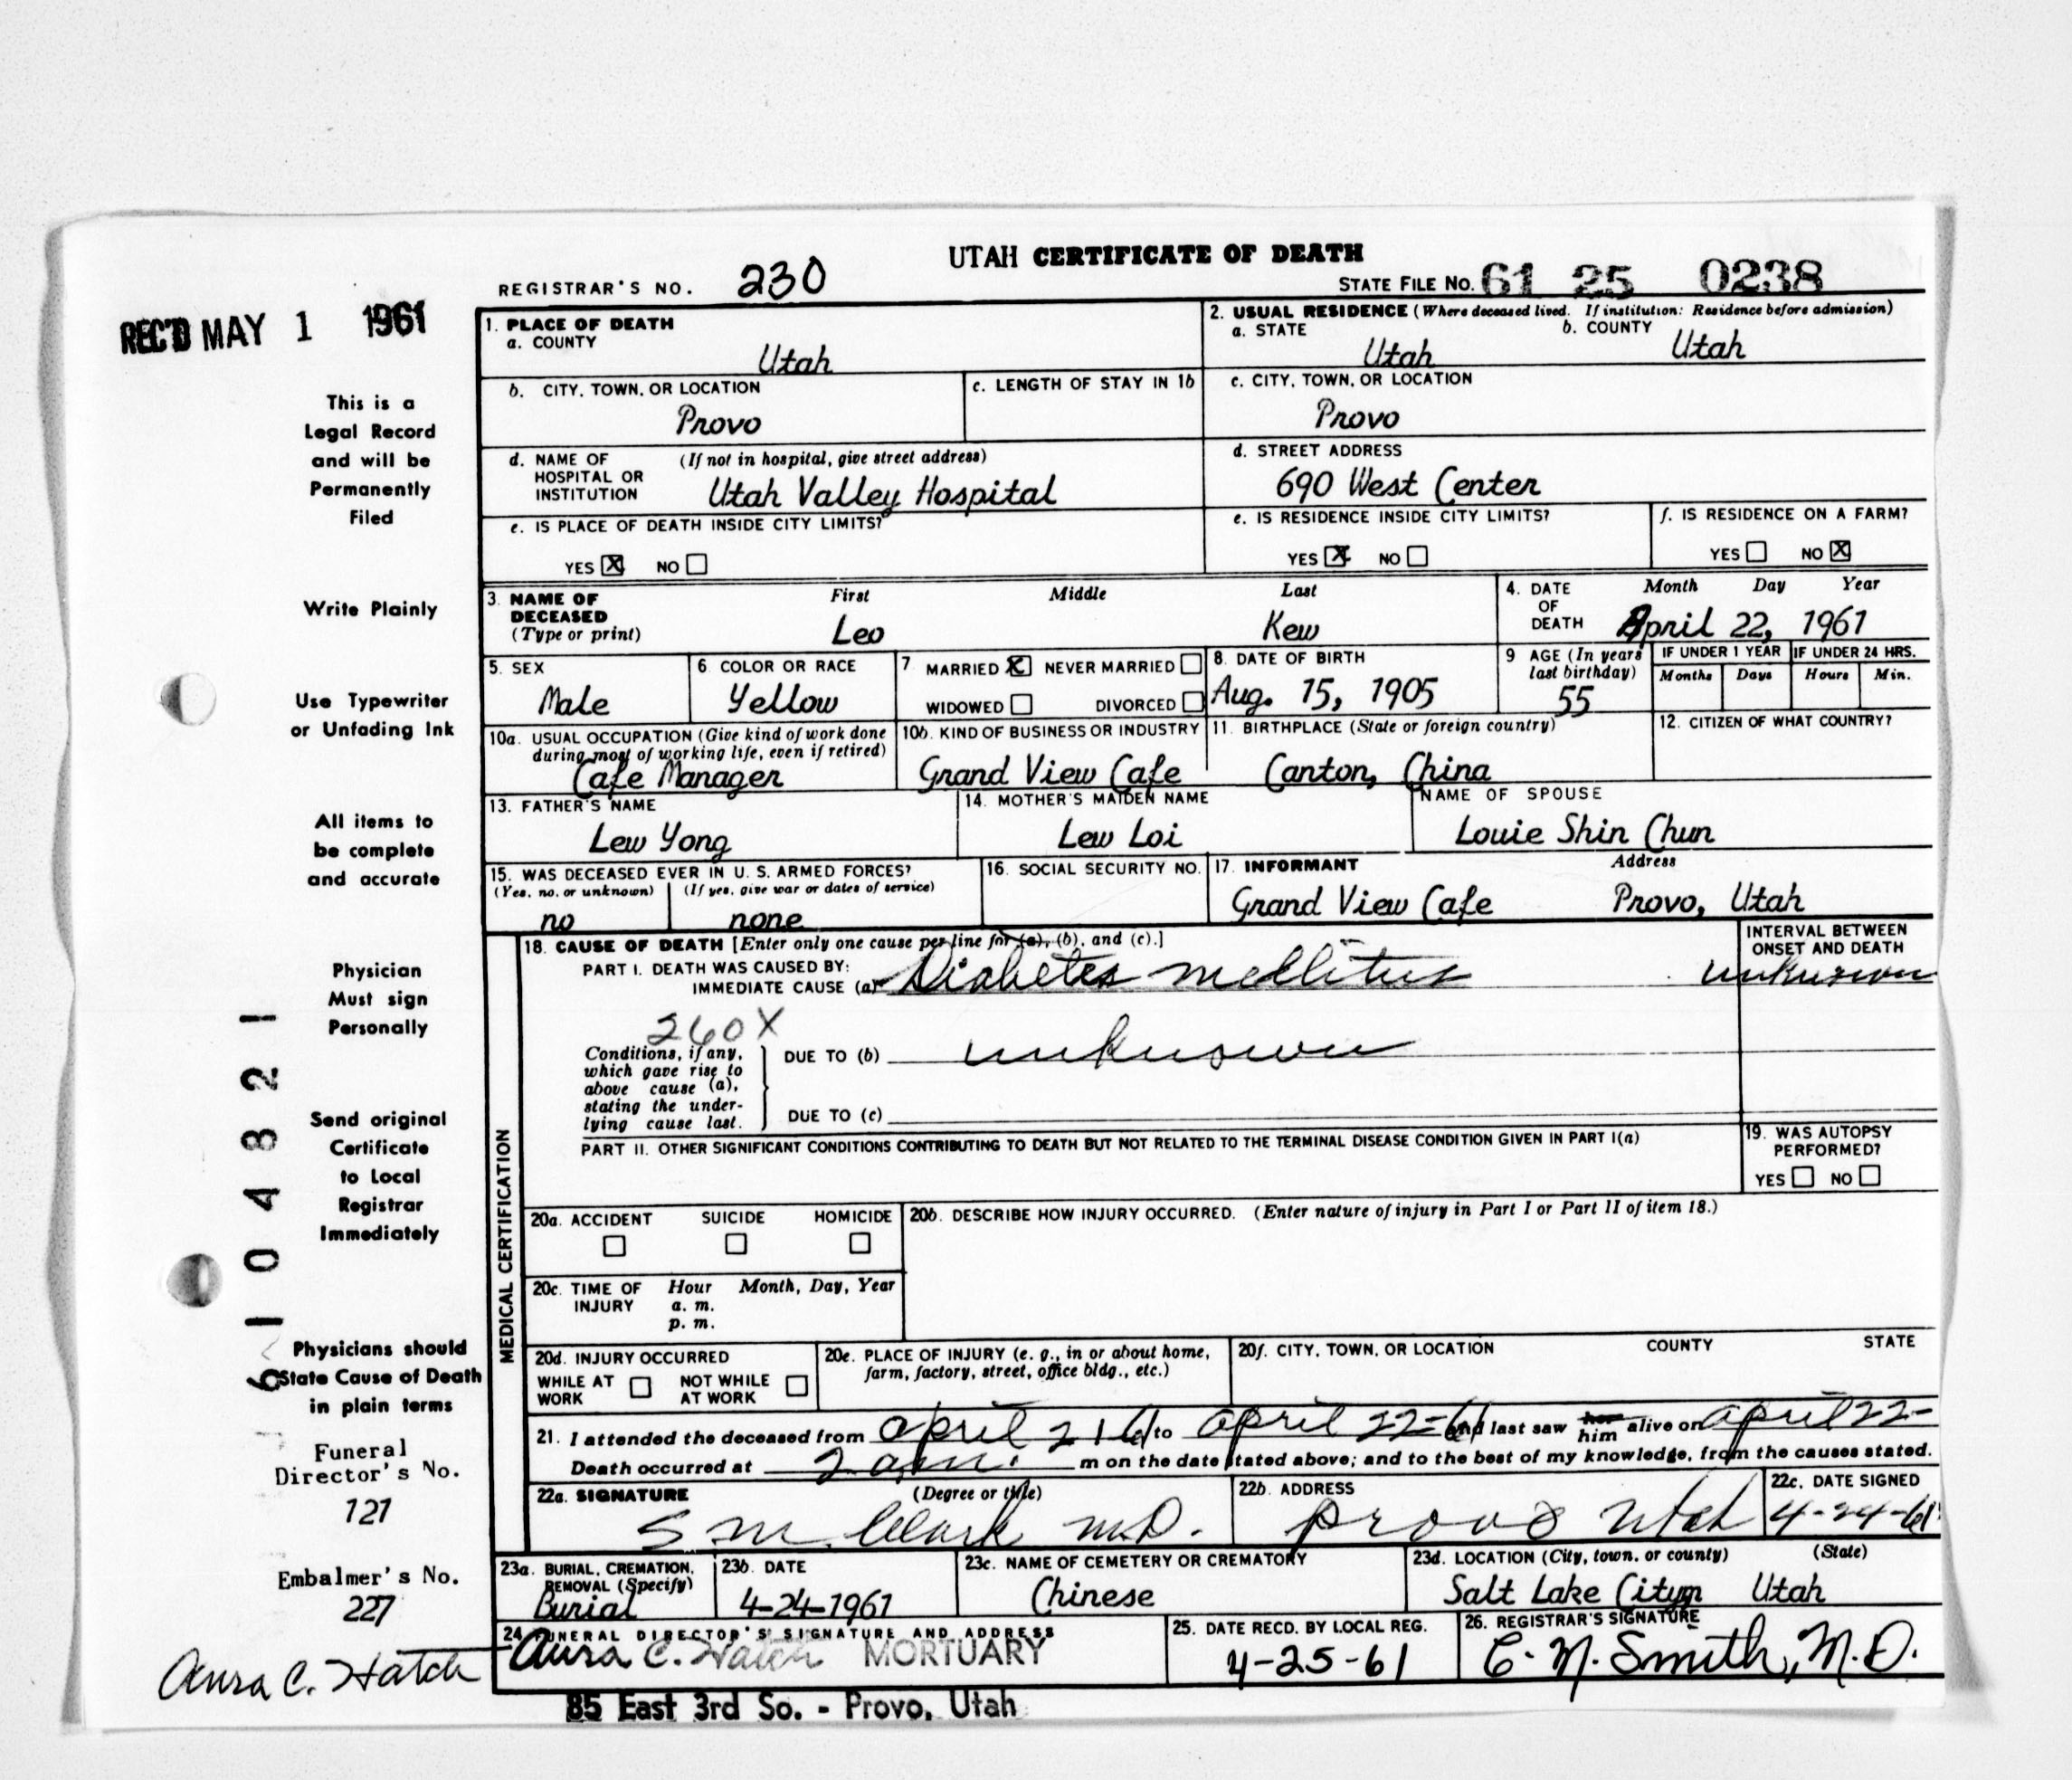 UTAH CERTIFICATE OF DEATH
REGISTRAR'S NO. 230
STATE FILE NO. 61 25 0238
REC'D MAY 1 1961
This is a
Legal Record
and will be
Permanently
Filed
Write Plainly
Use Typewriter
or Unfading Ink
All items to
be complete
and accurate
Physician
Must sign
Personally
Send original
Certificate
to Local
Registrar
Immediately
Physicians should
State Cause of Death
in plain terms
Funeral
Director's No.
121
Embalmer's No.
227
Aura C. Hatch
61104821
1. PLACE OF DEATH
a. COUNTY
Utah
2. USUAL RESIDENCE (Where deceased lived. If institution: Residence before admission)
a. STATE Utah
b. COUNTY Utah
b. CITY, TOWN, OR LOCATION
Provo
c. LENGTH OF STAY IN 1b
c. CITY, TOWN, OR LOCATION
Provo
d. NAME OF HOSPITAL OR INSTITUTION (If not in hospital, give street address)
Utah Valley Hospital
d. STREET ADDRESS
690 West Center
e. IS PLACE OF DEATH INSIDE CITY LIMITS?
YES X NO
e. IS RESIDENCE INSIDE CITY LIMITS?
YES X NO
f. IS RESIDENCE ON A FARM?
YES NO X
3. NAME OF DECEASED (Type or print)
First Middle Last
Leo Kew
4. DATE OF DEATH
Month Day Year
April 22, 1961
5. SEX
Male
6. COLOR OR RACE
Yellow
7 MARRIED X NEVER MARRIED
WIDOWED DIVORCED
8. DATE OF BIRTH
Aug. 15, 1905
9 AGE (In years last birthday)
55
IF UNDER 1 YEAR
Months Days
IF UNDER 24 HRS.
Hours Min.
10a. USUAL OCCUPATION (Give kind of work done during most of working life, even if retired)
Cafe Manager
10b. KIND OF BUSINESS OR INDUSTRY
Grand View Cafe
11. BIRTHPLACE (State or foreign country)
Canton, China
12. CITIZEN OF WHAT COUNTRY?
13. FATHER'S NAME
Lew Yong
14. MOTHER'S MAIDEN NAME
Lew Loi
NAME OF SPOUSE
Louie Shin Chun
15. WAS DECEASED EVER IN U. S. ARMED FORCES?
(Yes, no, or unknown) (If yes, give war or dates of service)
no none
16. SOCIAL SECURITY NO.
17. INFORMANT Address
Grand View Cafe Provo, Utah
MEDICAL CERTIFICATION
18. CAUSE OF DEATH [Enter only one cause per line for (a), (b), and (c).]
INTERVAL BETWEEN ONSET AND DEATH
PART I. DEATH WAS CAUSED BY:
IMMEDIATE CAUSE (a) Diabetes mellitus unknown
260X
Conditions, if any, which gave rise to above cause (a), stating the underlying cause last.
DUE TO (b) unknown
DUE TO (c)
PART II. OTHER SIGNIFICANT CONDITIONS CONTRIBUTING TO DEATH BUT NOT RELATED TO THE TERMINAL DISEASE CONDITION GIVEN IN PART I(a)
19. WAS AUTOPSY PERFORMED?
YES NO
20a. ACCIDENT SUICIDE HOMICIDE
20b. DESCRIBE HOW INJURY OCCURRED. (Enter nature of injury in Part I or Part II of item 18.)
20c. TIME OF INJURY Hour Month, Day, Year
a. m.
p. m.
20d. INJURY OCCURRED
WHILE AT WORK NOT WHILE AT WORK
20e. PLACE OF INJURY (e. g., in or about home, farm, factory, street, office bldg., etc.)
20f. CITY, TOWN, OR LOCATION COUNTY STATE
21. I attended the deceased from april 21 61 to april 22-61 and last saw her him alive on april 22-
Death occurred at 2 a.m. m on the date stated above; and to the best of my knowledge, from the causes stated.
22a. SIGNATURE (Degree or title)
S M. Clark M.D.
22b. ADDRESS
Provo Utah
22c. DATE SIGNED
4-24-61
23a. BURIAL, CREMATION, REMOVAL (Specify)
Burial
23b. DATE
4-24-1961
23c. NAME OF CEMETERY OR CREMATORY
Chinese
23d. LOCATION (City, town, or county) (State)
Salt Lake City Utah
24. FUNERAL DIRECTOR'S SIGNATURE AND ADDRESS
Aura C. Hatch MORTUARY
85 East 3rd So. - Provo, Utah
25. DATE RECD. BY LOCAL REG.
4-25-61
26. REGISTRAR'S SIGNATURE
C. M. Smith, M.D.